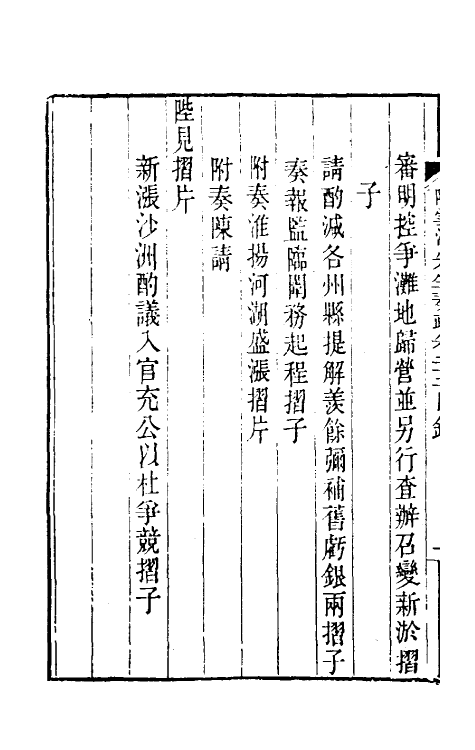 審明控爭灘地歸營並另行查辦召變新淤摺
子
請酌減各州縣提解羨餘彌補舊虧銀兩摺子
奏報監臨闈務起程摺子
附奏淮揚河湖盛漲摺片
附奏陳請
陛見摺片
新漲沙洲酌議入官充公以杜爭競摺子